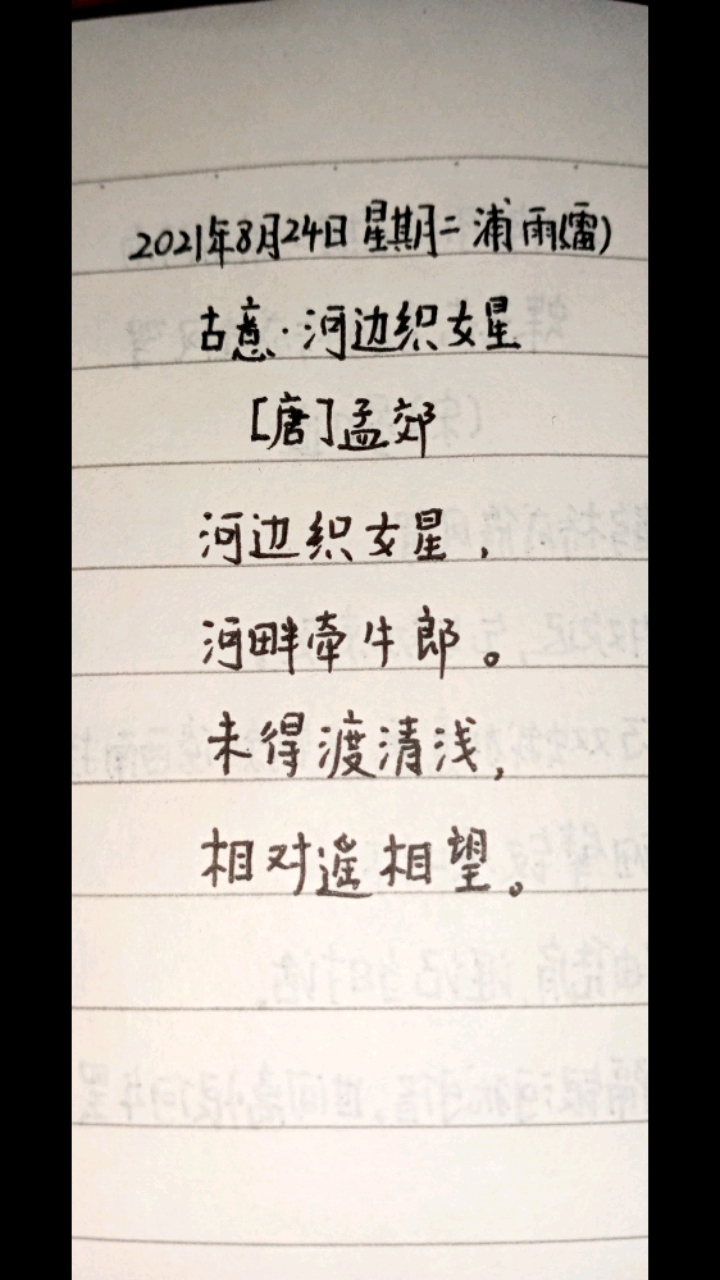 2021年8月24日 星期二 浦 雨(雷)
古意·河边织女星
[唐]孟郊
河边织女星,
河畔牵牛郎。
未得渡清浅,
相对遥相望。